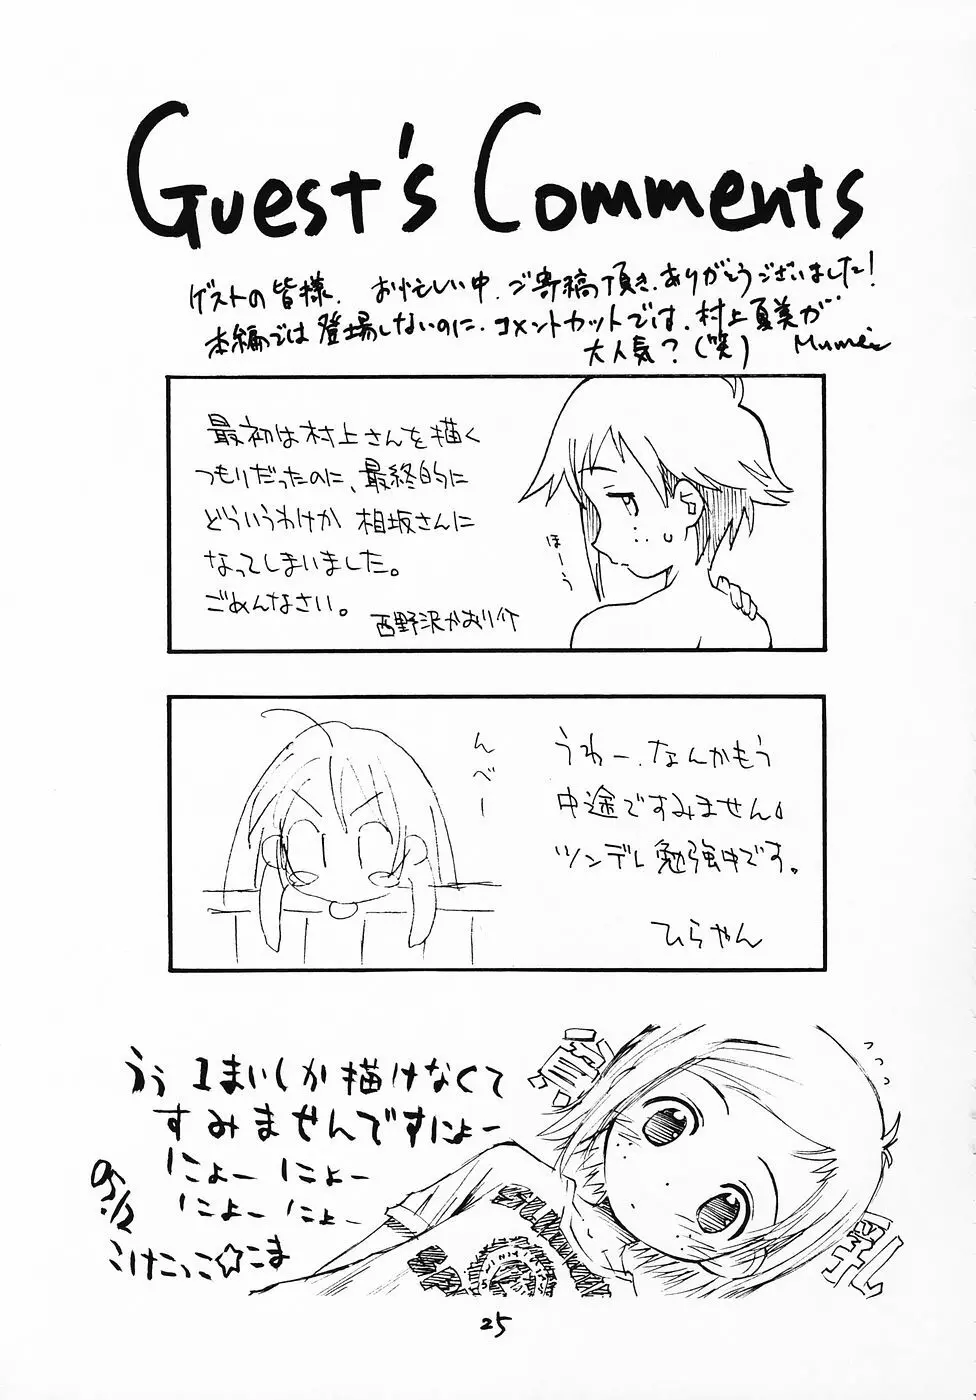 Guest's Comments
ゲストの皆様、お忙しい中、ご寄稿頂き、ありがとうございました!
本編では登場しないのに、コメントカットでは、村上夏美が…
大人気?(笑) Mumei
最初は村上さんを描く
つもりだったのに、最終的に
どういうわけか相坂さんに
なってしまいました。
ごめんなさい。
西野沢かおり介
ほーう
んべー
うわー、なんかもう
中途ですみません。
ツンデレ勉強中です。
ひらやん
うぅ 1まいしか描けなくて
すみませんですにょー
にょー にょー
にょー にょー
05.12
こけこっこ☆こま
っっっ
25